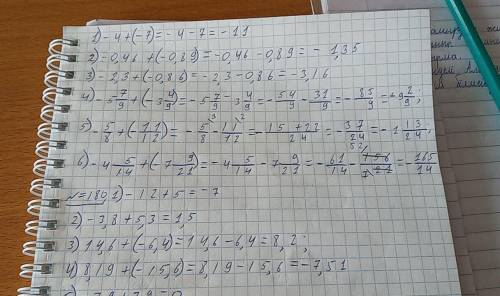 1) -4 + (-7) = -4 - 7 = -11
2) -0,46 + (-0,89) = -0,46 - 0,89 = -1,35
3) -2,3 + (-0,86) = -2,3 - 0,86 = -3,16
4) -5 7/9 + (-3 4/9) = -5 7/9 - 3 4/9 = - 54/9 - 31/9 = - 85/9 = 9 2/9;
5) - 5/8 + (- 11/12) = - 5/8 - 11/12 = - 15 + 22/24 = - 37/24 = -1 13/24
6) -4 5/14 + (-7 9/21) = -4 5/14 - 7 9/21 = - 61/14 = 165/14
№180. 1) -12 + 5 = -7
2) -3,8 + 5,3 = 1,5
3) 14,6 + (-6,4) = 14,6 - 6,4 = 8,2;
4) 8,19 + (-15,6) = 8,19 - 15,6 = -7,51